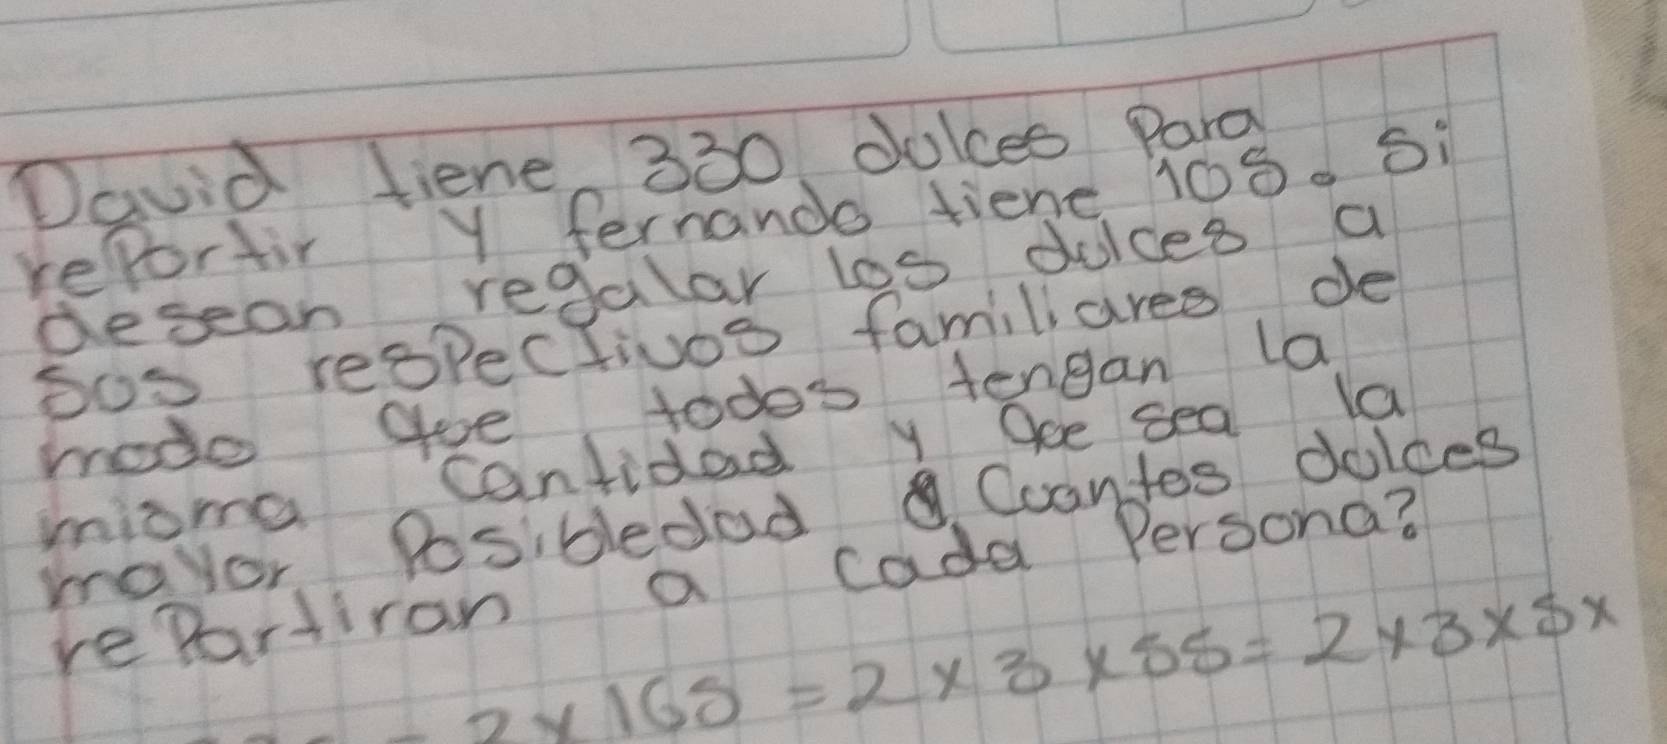 David tiene 330 dulces Para
rePortir y fernando tiene 105. Si
desean regalar los dulces a
sos respectivos familiares de
modo que todos tengan la
misma cantidad y que sea la
mayor Posibledad Cuantos dulces
rePartiran a cada Persona?
2 x 165 = 2 x 3 x 55 = 2 x 3 x 5 x